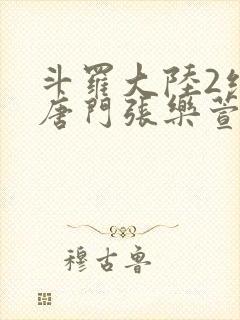 斗羅大陸2
唐門張樂萱
穆古魯